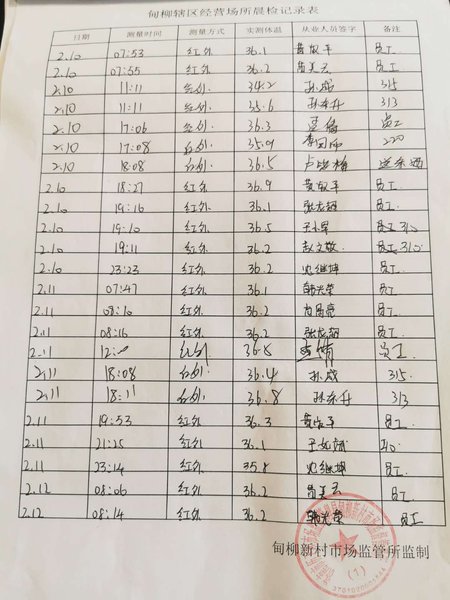 甸柳辖区经营场所晨检记录表
日期 测量时间 测量方式 实测体温 从业人员签字 备注
2.10 07:53 红外 36.1 员工
2.10 07:55 红外 36.2 员工
2.10 11:11 红外 34.2 孙成 315
2.10 11:11 红外 35.6 孙东升 313
2.10 17:06 红外 36.3 员工
2.10 17:08 红外 35.9 220
2.10 18:08 红外 36.5
2.10 18:27 红外 36.9 员工
2.10 19:16 红外 36.1 员工
2.10 19:10 红外 36.5 员工310
2.10 19:11 红外 36.2 赵文敬 员工310
2.10 23:23 红外 36.2 继坤 员工
2.11 07:47 红外 36.1 韩光荣 员工
2.11 08:10 红外 36.2 员工
2.11 08:16 红外 36.2 员工
2.11 红外 36.8 员工
2.11 18:08 红外 36.4 孙成 315
2.11 18:11 红外 36.8 孙东升 313
2.11 19:53 红外 36.3 员工
2.11 21:25 红外 36.1
2.11 23:14 红外 35.8 继坤 员工
2.12 08:06 红外 36.2 员工
2.12 08:14 红外 36.2 韩光荣 员工
甸柳新村市场监管所监制
(1)